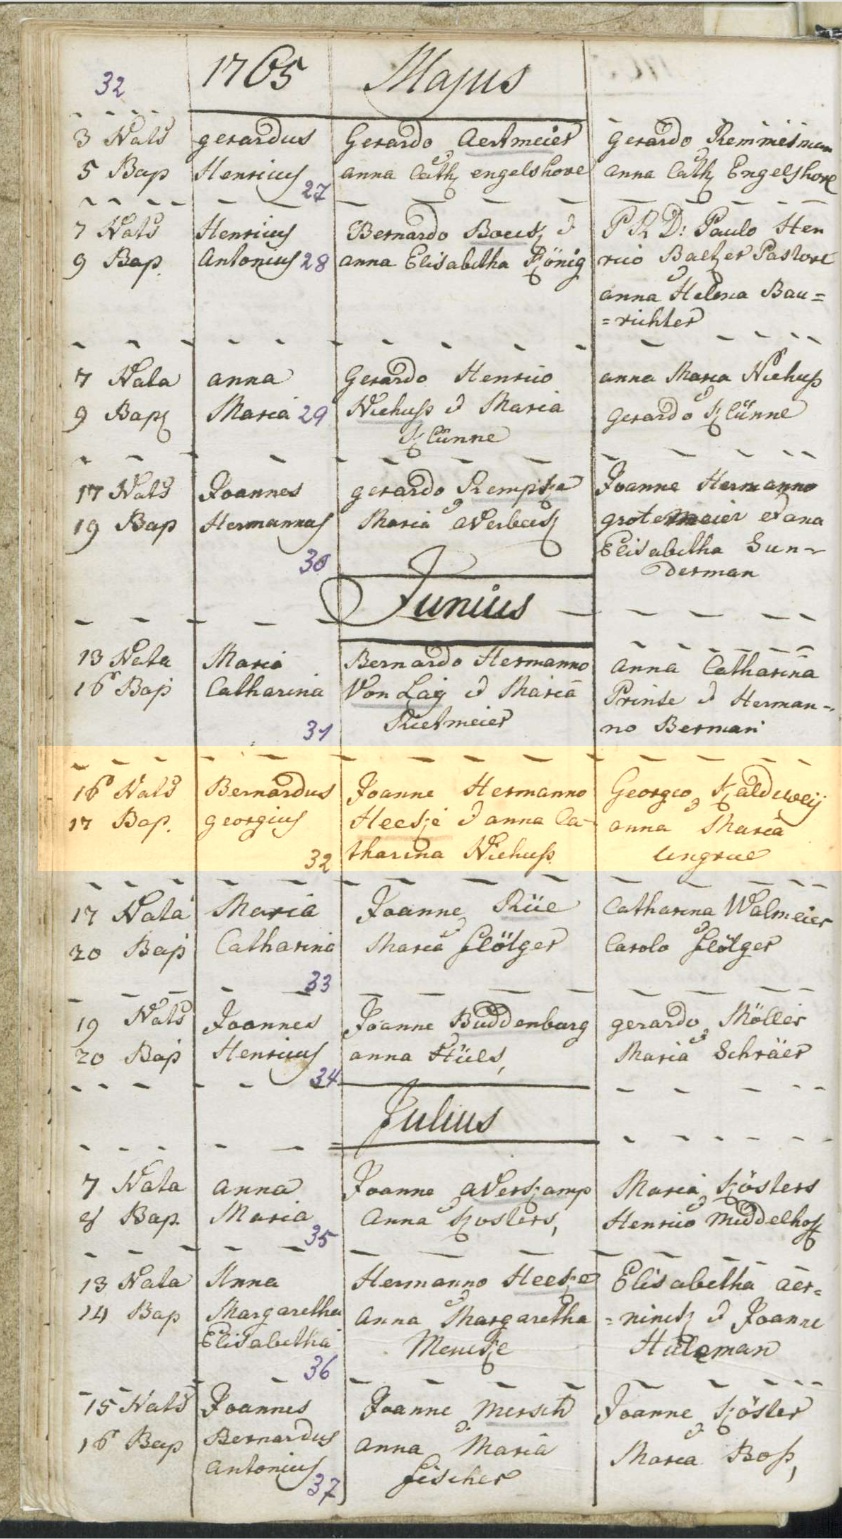 32 1765 Majus
3 Nats gerardus Gerardo Aertmeier gerardo Remmesman
5 Bap Henricus 27 anna Cath engelshove anna Cath Engelshove
7 Nats Henricus Bernardo Boeck &
9 Bap. Antonius 28 anna Elisabetha König
P R D: Paulo Hen
rico Baetzer Pastore
&
anna Helena Bau=
=richter
7 Nata anna Gerardo Henrico anna Maria Niehuss
9 Bap Maria 29 Niehuss & Maria & gerardo Klünne
Klünne
17 Nats Joannes gerardo Rempke Joanne Hermanno
19 Bap Hermannus & Maria averbeck grotemeier et ana
30 Elisabetha Sun-
derman
Junius
13 Nata Maria Bernardo Hermanno anna Catharina
16 Bap Catharina Von Laig & Maria Prinse & Herman-
31 Rietmeier no Berman
16 Nats Bernardus Joanne Hermanno Georgeo Kaldeweij
17 Bap. georgius Heeke & anna Ca- & anna Maria
32 tharina Niehuss. Ungrue
17 Nata Maria Joanne Rüe Catharina Walmeier
20 Bap Catharina & Maria flötger & Carolo flötger
33
19 Nats Joannes Joanne Buddenburg gerardo Möller
20 Bap Henricus & anna Hüls, & Maria Schräer
34
Julius
7 Nata anna Joanne averkamp Maria Kösters
8 Bap. Maria & Anna Kosters, & Henrico Middelhoff
35
13 Nata Anna Hermanno Heeke Elisabetha aer=
14 Bap Margaretha & Anna Margaretha =ninck & Joanne
Elisabetha Mencke Hüleman
36
15 Nats Joannes Joanne Mersch Joanne Köster
16 Bap Bernardus & anna Maria & Maria Boss,
Antonius 37 fischer